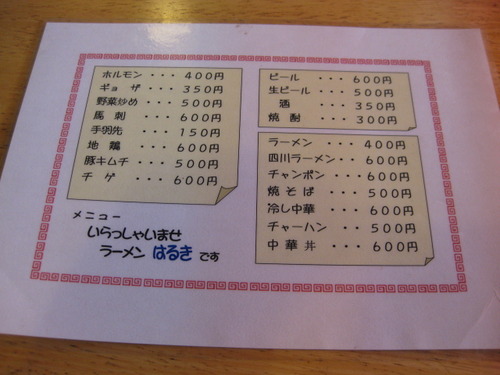 ホルモン・・・400円
ギョ ザ・・・350円
野菜炒め・・・500円
馬 刺・・・600円
手羽先・・・150円
地 鶏・・・600円
豚キムチ・・・500円
チ ゲ・・・600円
メニュー
いらっしゃいませ
ラーメン はるき です
ビール・・・600円
生ビール・・・500円
酒・・・350円
焼 酎・・・300円
ラーメン・・・400円
四川ラーメン・・600円
チャンポン・・・600円
焼そば・・・500円
冷し中華・・・600円
チャーハン・・・500円
中 華 丼・・・600円